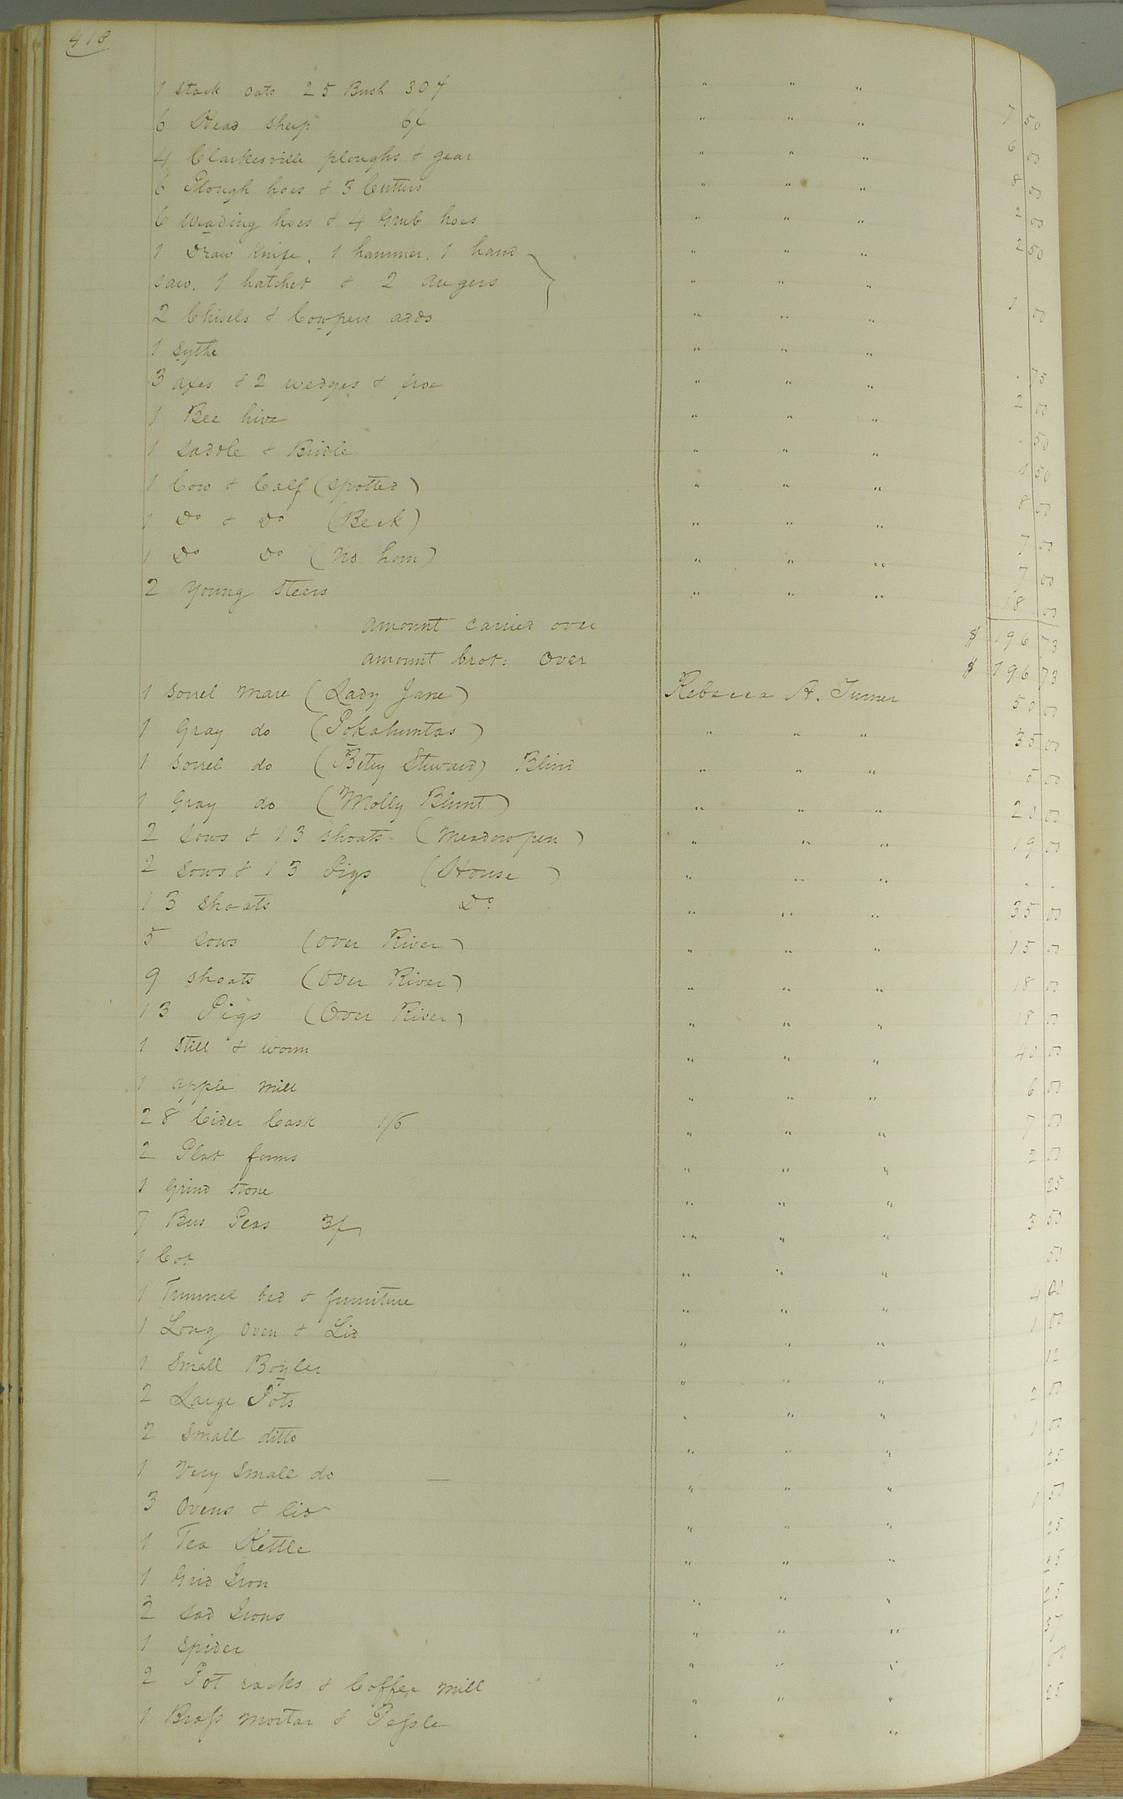 418
1 Stack oats 25 Bush 30¢ " " " 7 50
6 Head sheep 6/ " " " 6 00
4 Clarkesville ploughs & gear " " " 8 00
6 Plough hoes & 3 Cutters " " " 2 00
6 Weading hoes & 4 Grub hoes " " " 2 50
1 Draw Knife, 1 hammer, 1 hand " " "
saw, 1 hatchet & 2 Augers " " "
2 Chisels & Cowpers adds " " " 1 00
1 Sythe " " "
3 axes & 2 wedges & froe " " " 2 00
1 Bee hive " " " 50
1 Saddle & Bridle " " " 1 50
1 Cow & Calf (Spotted) " " " 8 00
1 Do & Do (Beck) " " " 7 00
1 Do Do (No horn) " " " 7 00
2 Young Steers " " " 18 00
Amount carried over $ 196 73
Amount brot. Over $ 196 73
1 Sorrel mare (Lady Jane) Rebecca A. Turner 50 00
1 Gray do (Pokahuntas) " " " 35 00
1 Sorrel do (Betsy Steward) Blind " " " 5 00
1 Gray do (Molly Blunt) " " " 20 00
2 Sows & 13 Shoats (Meadow pen) " " " 19 00
2 Sows & 13 Pigs (House) " " " . .
13 Shoats Do " " " 35 00
5 Sows (over River) " " " 15 00
9 Shoats (over River) " " " 18 00
13 Pigs (Over River) " " " 18 00
1 Still & worm " " " 40 00
1 apple mill " " " 6 00
28 Cider Cask 1/6 " " " 7 00
2 Plat forms " " " 2 00
1 Grind stone " " " 25
7 Bus Peas 3/ " " " 3 50
1 Cot " " " 50
1 Trunnel bed & furniture " " " 4 00
1 Long Oven & Lid " " " 1 00
1 Small Boyler " " " 12
2 Large Pots " " " 2 00
2 Small ditto " " " 1 00
1 Very Small do " " " 25
3 Ovens & lid " " " 1 50
1 Tea Kettle " " " 25
1 Grid Iron " " "
2 Sad Irons " " "
1 Spider " " "
2 Pot racks & Coffee mill " " "
1 Brass mortar & Pessle " " "